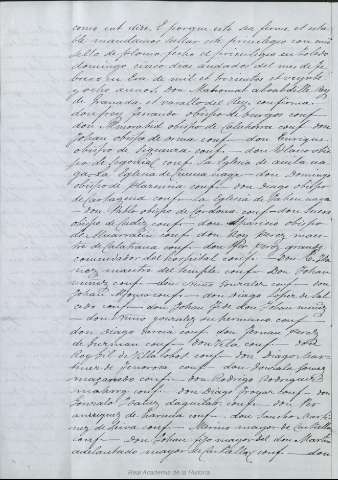 como est dize. E porque esto sea firme, et esta
ble mandamos sellar este privilegio con nro
sello de plomo, fecho el privilegio en toledo
domingo, cinco dias andados del mes de fe
brero en Era de mil et trescientos et veynte
y ocho annos. Don Mahomat Aboabdille Rey
de Granada, et vasallo del Rey, confirma-
don frey fernando obispo de burgos conf
don obispo de Calahorra conf don
Johan obispo de osma conf don
obispo de Siguenza conf don Blasco obis
po de Segovia conf la Eglesia de avila va
ga- La Eglesia de Cuenca vaga- don Domingo
obispo de Plazencia conf don Diago obispo
de Cartagena conf la Eglesia de Jahen vaga
- don obispo de Cordova conf don Suero
obispo de Cadiz conf don obispo
de Albarrazin conf don Roy Perez maes
tre de Calatrava conf don Fer Perez grant
comendador del hospital conf Don
maestro del temple conf Don Johan
nunnez conf don Nunno Gonzalez conf don
Johan Alfonso conf don diago lopez de Sal
cedo conf don Johan fijo de don Johan nunnez
don Nunno gonzalez su hermano conf
don Diago Garcia conf don Fernan Perez
de Guzman conf Don Vela conf Don
Roy Gil de Villalobos conf don Diago Mar
tinez de finorosa conf don Gonzalo Gomez
mazanedo conf don Rodrigo Rodriguez
malrrique conf don Diago froyaz conf don
Gonzalo Ibannez daguilar conf don Per
anriquez de harana conf don Sancho Marti
nez de leiva conf Merino mayor de Castiella
conf Don Johan fijo mayor del don Martin
adelantado mayor de Castiella conf don
Real Academia de la Historia